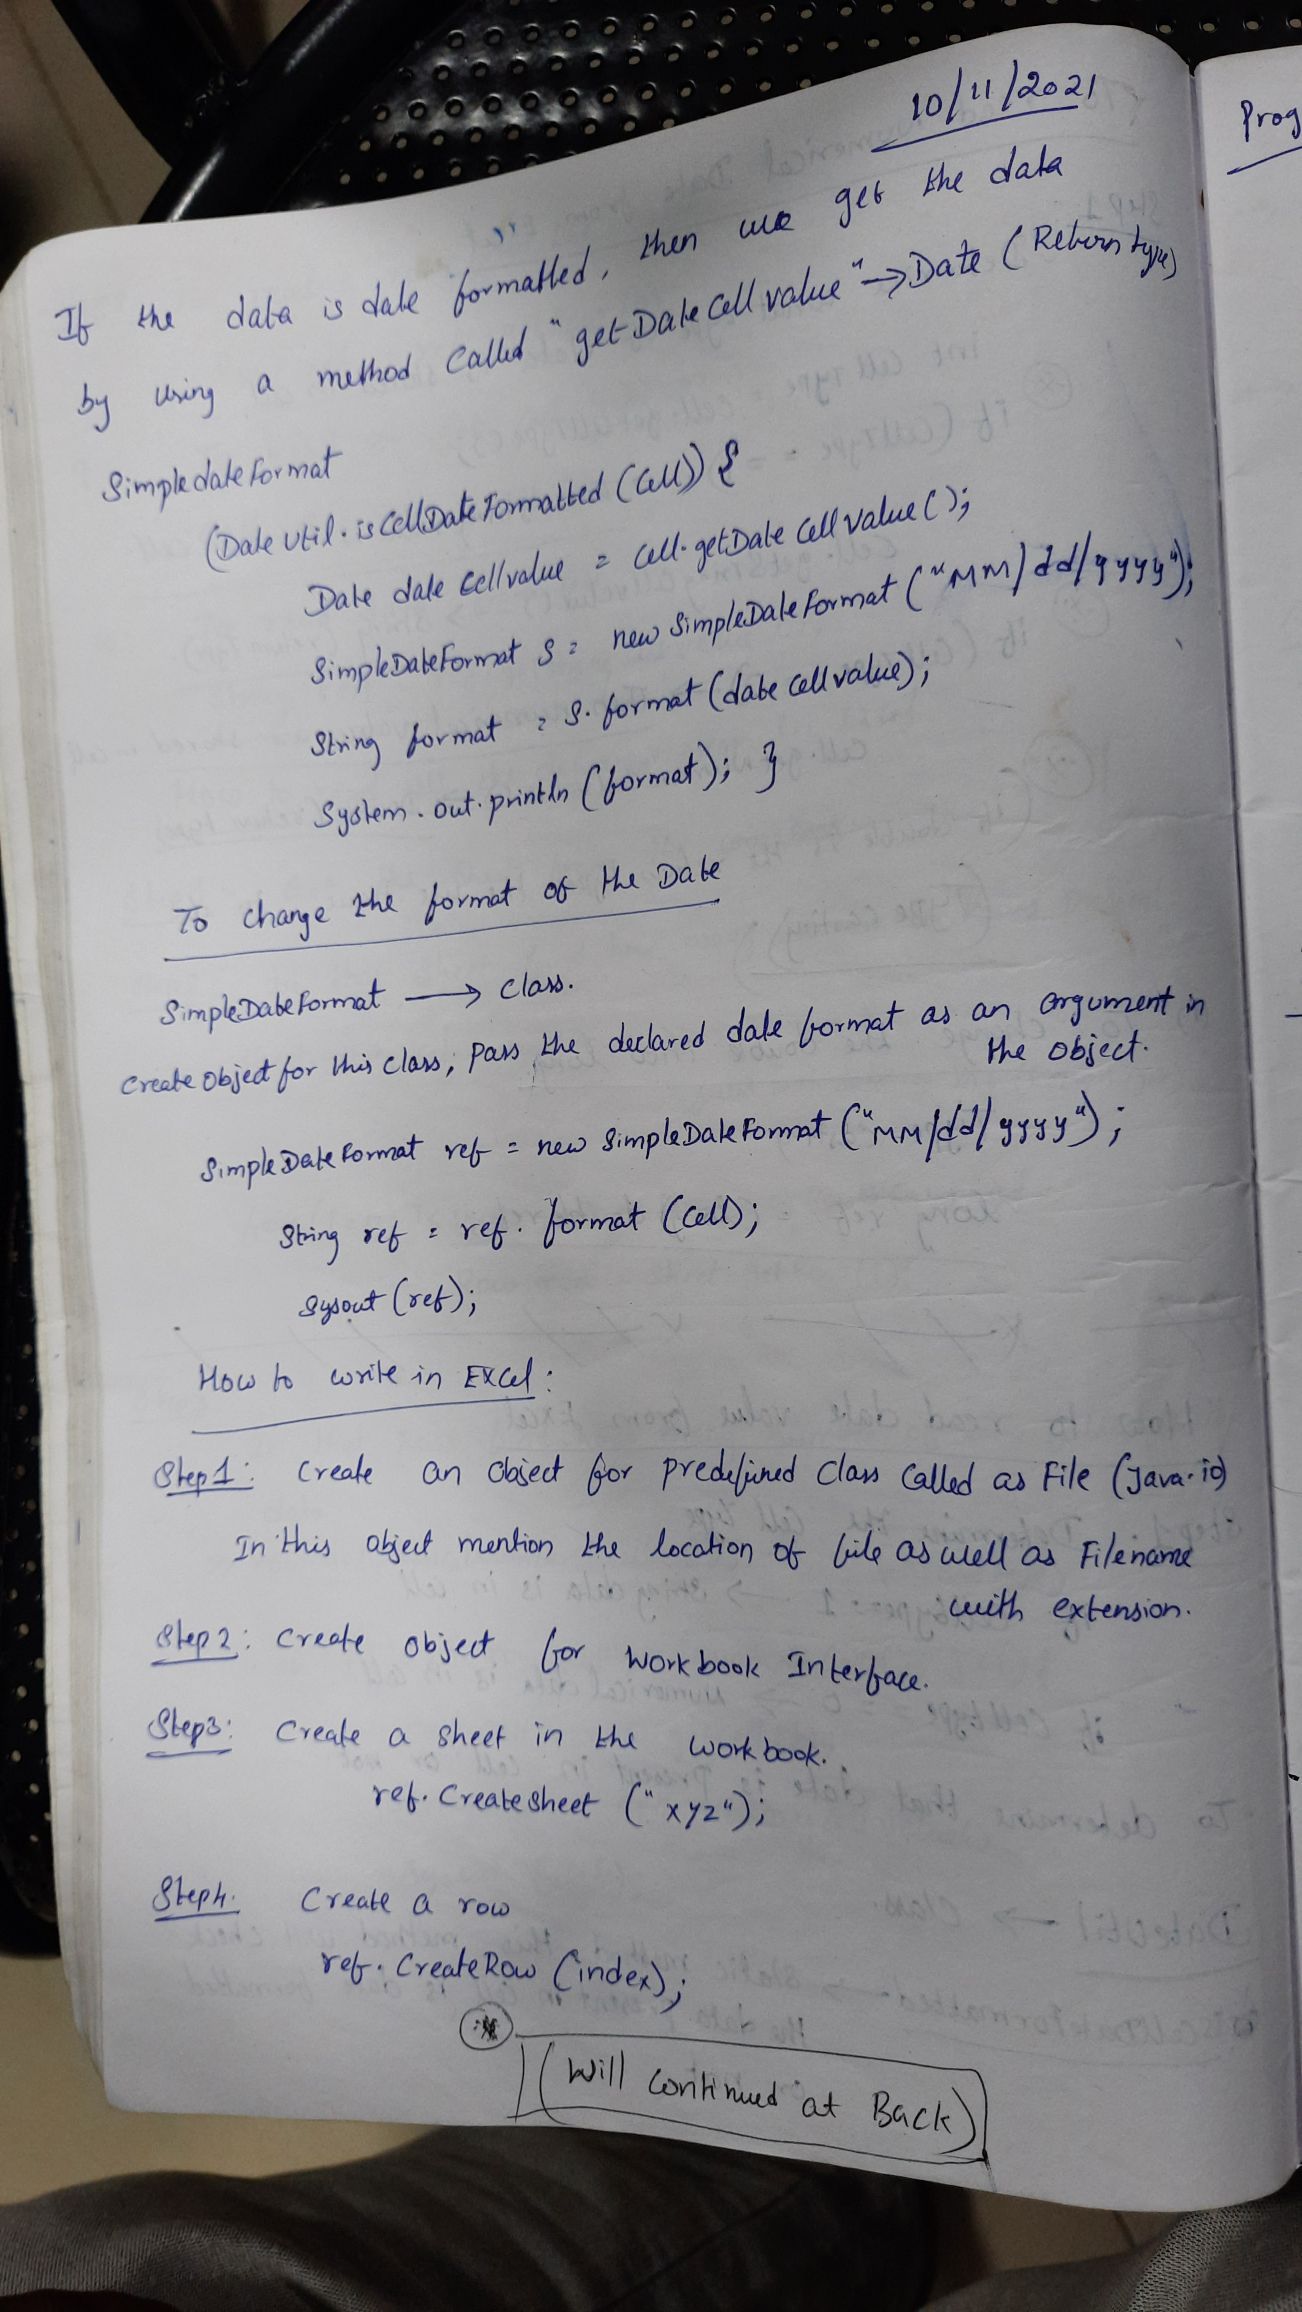 10/11/2021
Prog
If the data is date formatted, then we get the data
by using a method called "getDateCellvalue" → Date (Return type)
Simpledateformat
(Dateutil.isCellDateFormatted (Cell)) {
Date date Cellvalue = Cell.getDate Cellvalue();
SimpleDateFormat S = new SimpleDateFormat ("MM/dd/yyyy");
String format = S.format (date Cellvalue);
System.out.println (format); }
To change the format of the Date
SimpleDateFormat → Class.
Create Object for this class, Pass the declared date format as an argument in
the object.
SimpleDateFormat ref = new SimpleDateFormat ("MM/dd/yyyy");
String ref = ref. format (Cell);
Sysout (ref);
How to write in Excel:
Step 1: Create an Object for predefined Class Called as File (Java.io)
In this object mention the location of file as well as Filename
with extension.
Step 2: Create object for Workbook Interface.
Step3: Create a sheet in the workbook.
ref. Createsheet ("xyz");
Step4. Create a row
ref. CreateRow (index);
(Will Continued at Back)